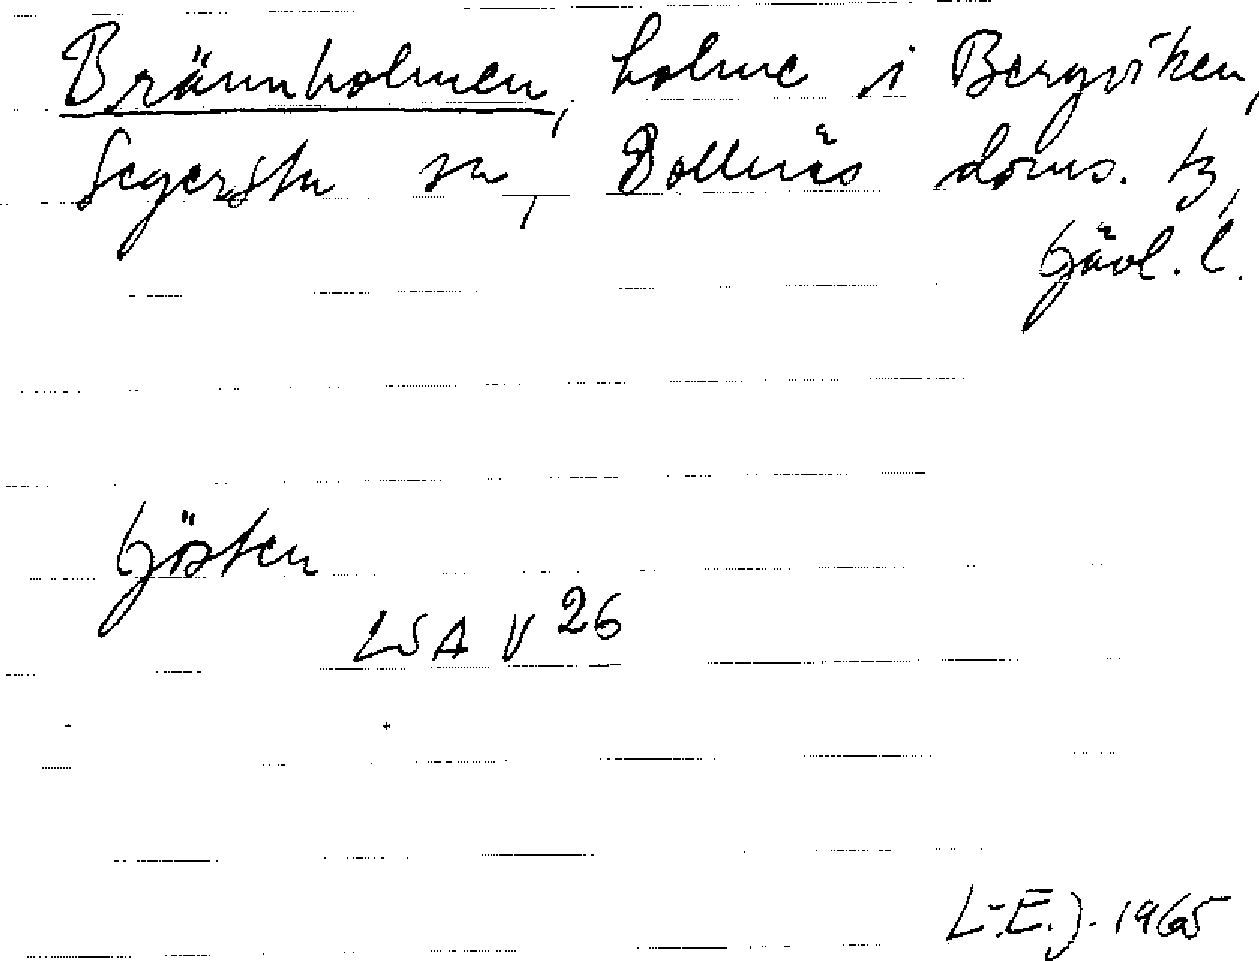 Brännholmen, holme i Bergviken,
Segersta sn, Bollnäs doms. tg,
Gävl. l.
Gösten
LSA V 26
L-E.J. 1965